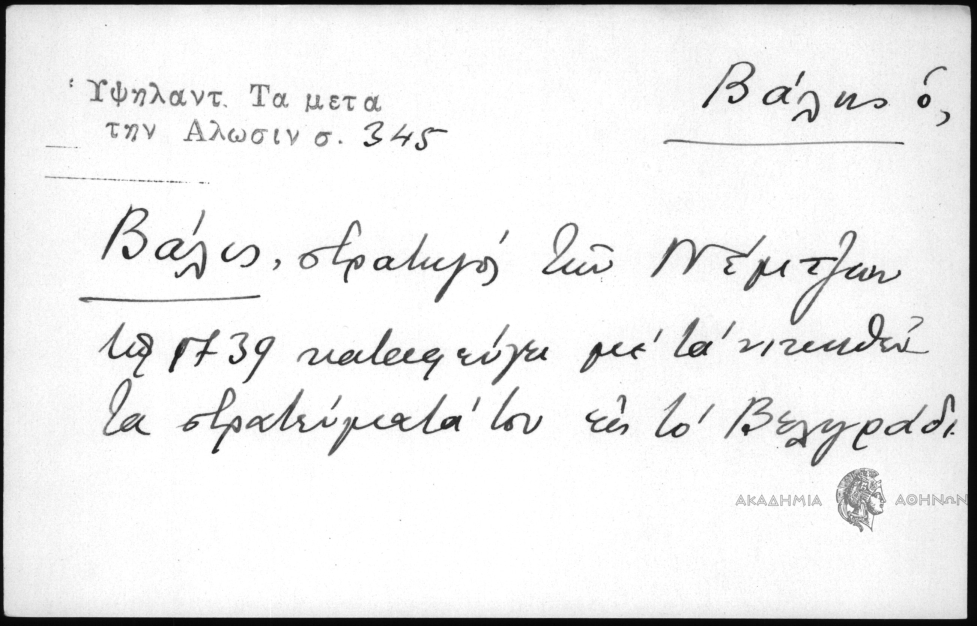 Ὑψηλαντ. Τα μετα
την Αλωσιν σ. 345
Βάλης ὁ,
Βάλις, στρατηγός τῶν Νέμιτζων
τῷ 1739 καταφεύγει μέ τά νικηθέν
τα στρατεύματά του εἰς τό Βελιγράδι.
ΑΚΑΔΗΜΙΑ ΑΘΗΝΩΝ